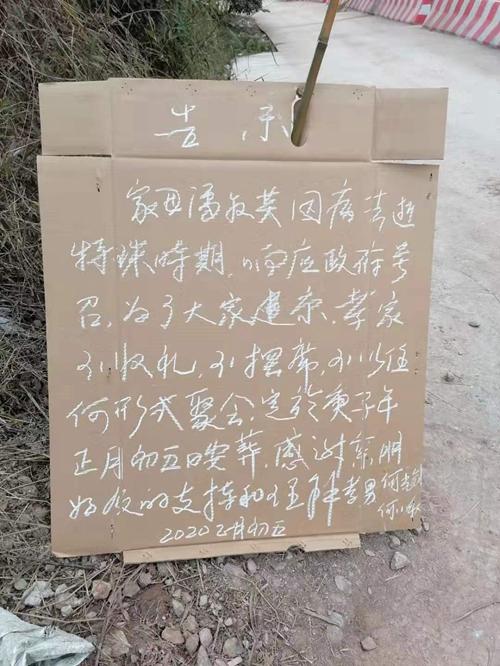 告示
家母潘 英因病去逝
特殊時期,响应政府号
召,为了大家健康,孝家
不收礼,不摆席,不以任
何形式聚会,定於庚子年
正月初五日安葬,感谢亲朋
好友的支持和理解孝男 何
何小
2020正月初五